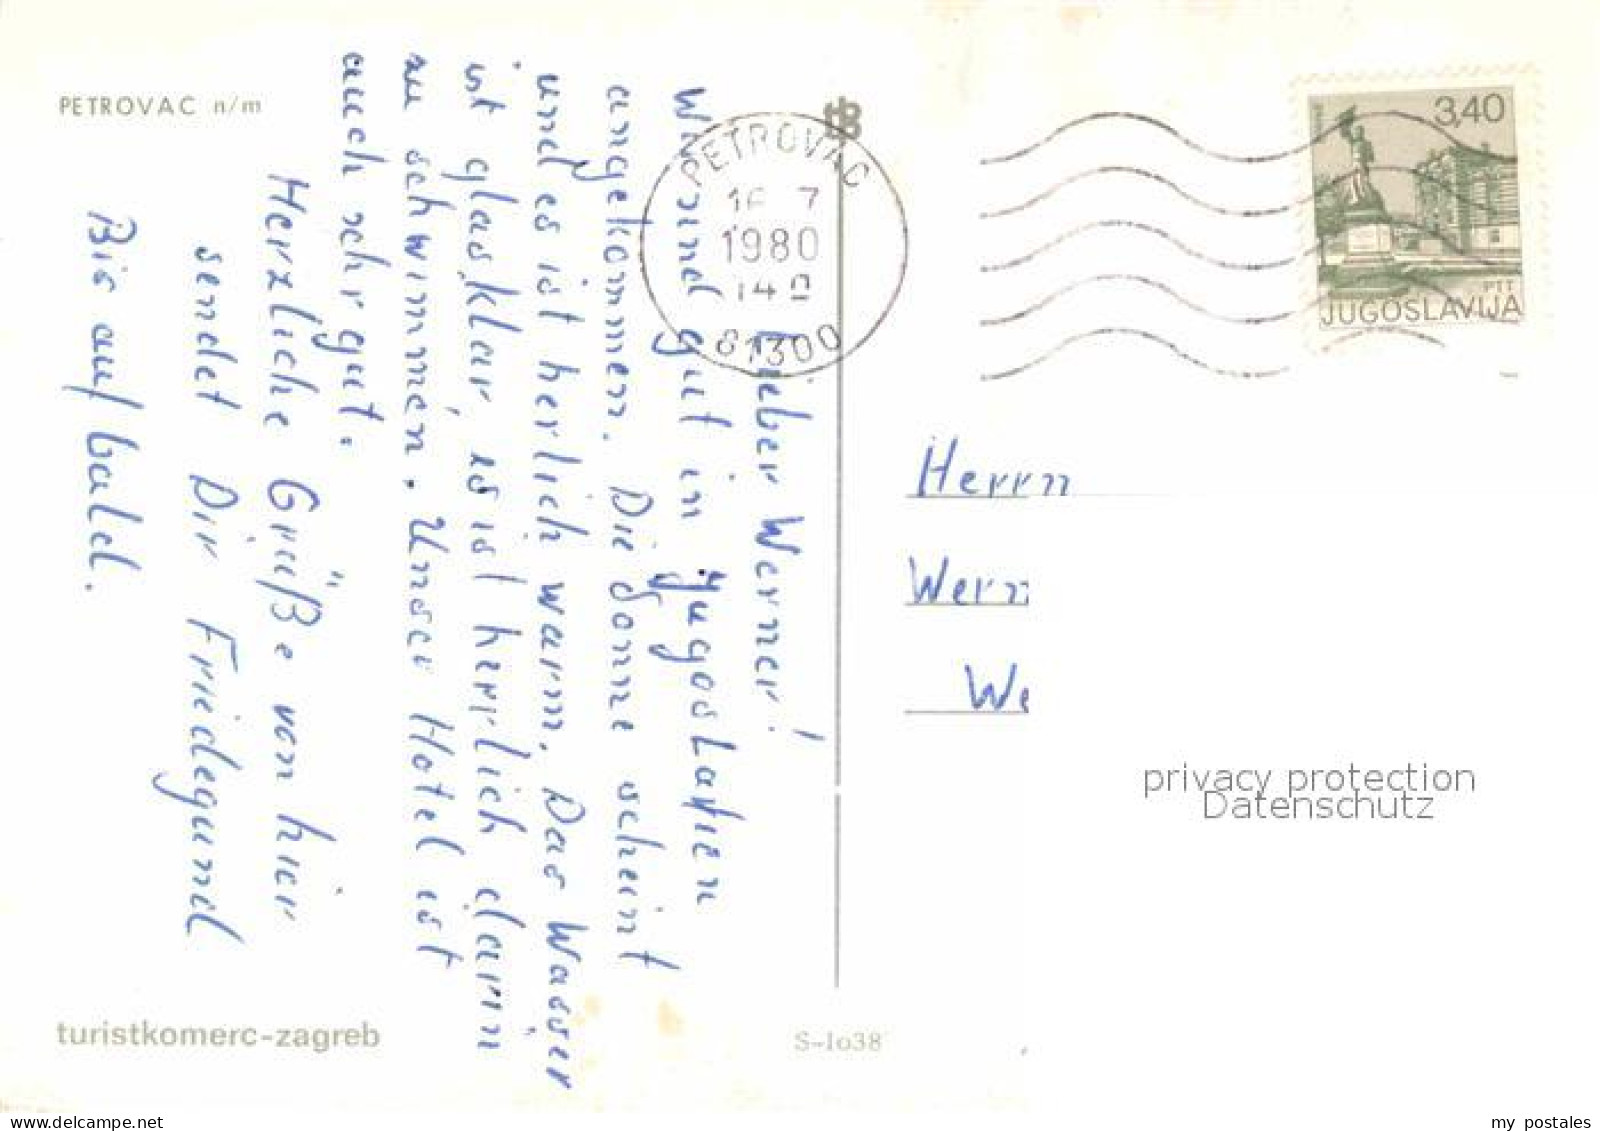 PETROVAC n/m
Lieber Werner!
Wir sind gut in Jugoslavien
angekommen. Die Sonne scheint
und es ist herlich warm. Das Wasser
ist glasklar, es ist herrlich darin
zu schwimmen. Unser Hotel ist
auch sehr gut.
Herzliche Grüße von hier
sendet Dir Friedegund
Bis auf bald.
turistkomerc-zagreb
S-1o38
PETROVAC
16 7
1980
14
81300
3,40
PTT
JUGOSLAVIJA
Herrn
Wern
We
privacy protection
Datenschutz
delcampe.net
my_postales